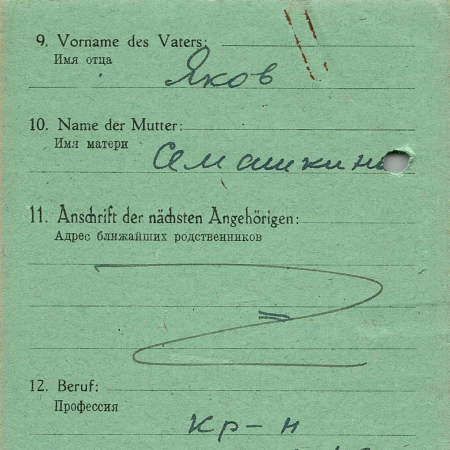 9. Vorname des Vaters:
Имя отца
Яков
10. Name der Mutter:
Имя матери
11. Anschrift der nächsten Angehörigen:
Адрес ближайших родственников
12. Beruf:
Профессия
кр-н